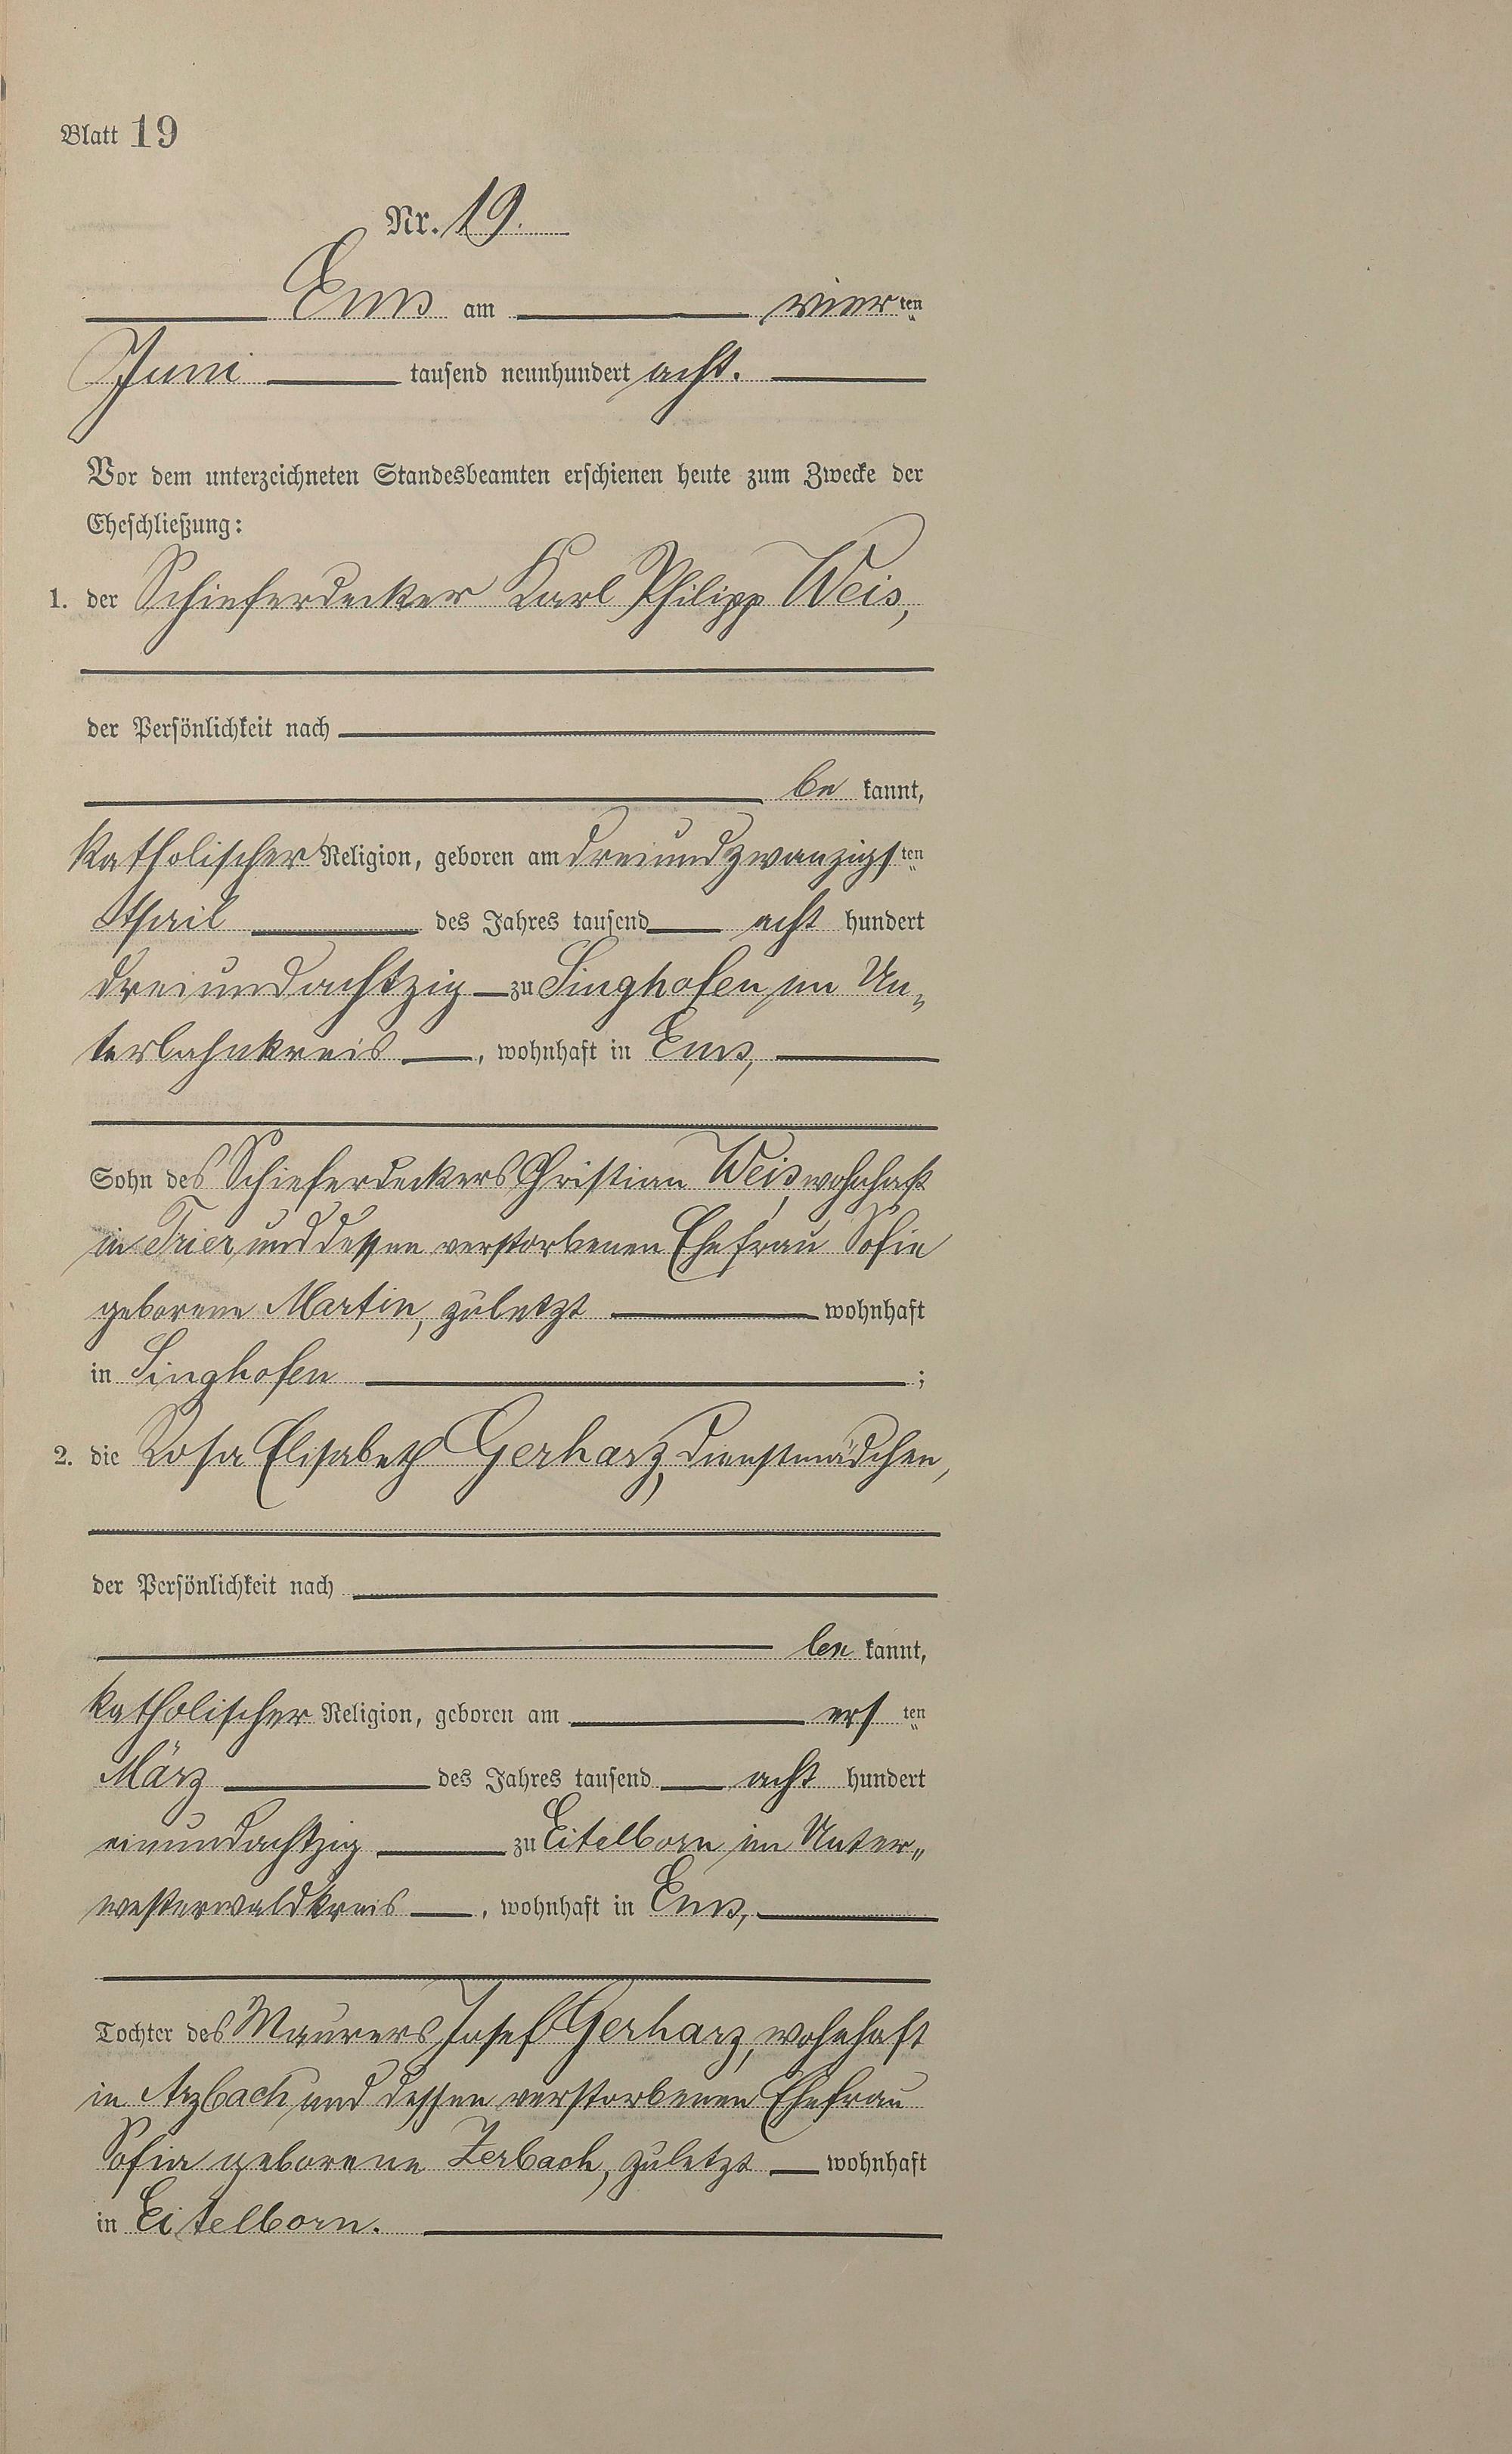 Blatt 19
Nr. 19.
Ems am vierten
Juni tausend neunhundert acht.
Vor dem unterzeichneten Standesbeamten erschienen heute zum Zwecke der
Eheschließung:
1. der Schieferdecker Karl Philipp Weis,
der Persönlichkeit nach
be kannt,
katholischer Religion, geboren am dreiundzwanzigsten
April des Jahres tausend acht hundert
dreiundachtzig zu Singhofen im Un„
terlahnkreis, wohnhaft in Ems,
Sohn des Schieferdeckers Christian Weis, wohnhaft
in Trier, und dessen verstorbenen Ehefrau Sofie
geborene Martin, zuletzt wohnhaft
in Singhofen ;
2. die Rosa Elisabeth Gerharz, Dienstmädchen,
der Persönlichkeit nach
be kannt,
katholischer Religion, geboren am ersten
März des Jahres tausend acht hundert
einundachtzig zu Eitelborn im Unter„
westerwaldkreis, wohnhaft in Ems,
Tochter des Maurers Josef Gerharz, wohnhaft
in Arzbach und dessen verstorbenen Ehefrau
Sofia geborene Zerbach, zuletzt wohnhaft
in Eitelborn.